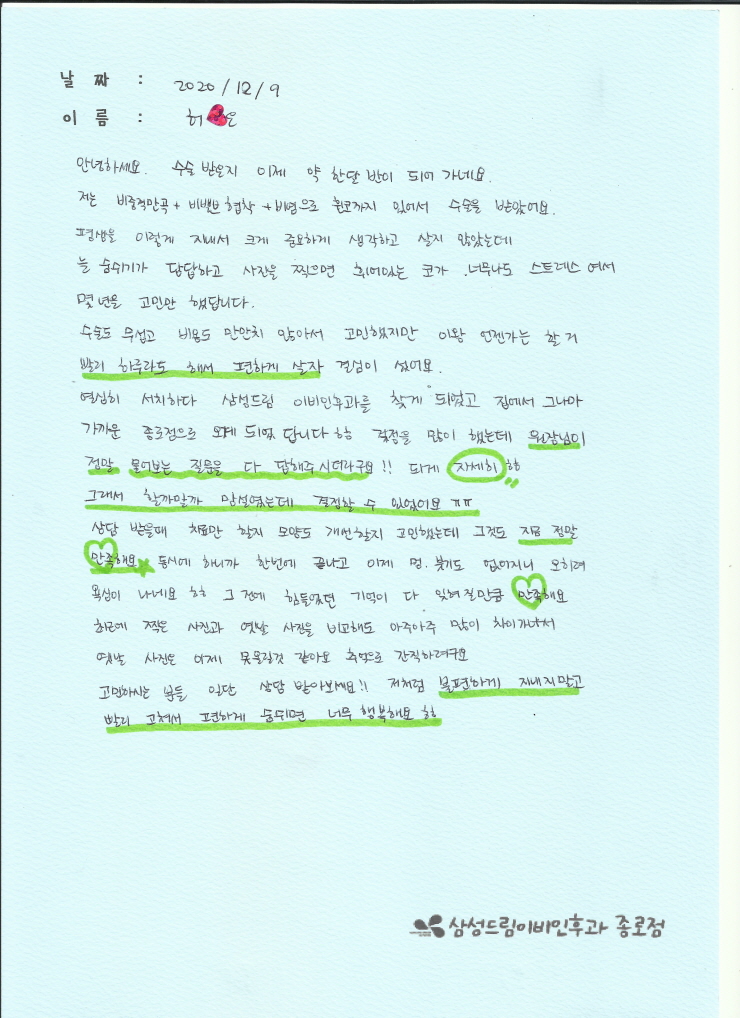 날 짜 : 2020/12/9
이 름 : 허 은
안녕하세요. 수술 받은지 이제 약 한달 반이 되어 가네요.
저는 비중격만곡 + 비밸브 협착 + 비염으로 휜코까지 있어서 수술을 받았어요.
평생을 이렇게 지내서 크게 중요하게 생각하고 살지 않았는데
늘 숨쉬기가 답답하고 사진을 찍으면 휘어있는 코가 너무나도 스트레스여서
몇 년을 고민만 했답니다.
수술도 무섭고 비용도 만만치 않아서 고민했지만 이왕 언젠가는 할 거
빨리 하루라도 해서 편하게 살자 결심이 섰어요.
열심히 서치하다 삼성드림 이비인후과를 찾게 되었고 집에서 그나마
가까운 종로점으로 오게 되었답니다 ㅎㅎ 걱정을 많이 했는데 원장님이
정말 물어보는 질문을 다 답해주시더라구요!! 되게 자세히 ㅎㅎ
그래서 할까말까 망설였는데 결정할 수 있었어요 ㅠㅠ
상담 받을때 치료만 할지 모양도 개선할지 고민했는데 그것도 지금 정말
만족해요 동시에 하니까 한번에 끝나고 이제 멍, 붓기도 없어지니 오히려
욕심이 나네요 ㅎㅎ 그 전에 힘들었던 기억이 다 잊혀질만큼 만족해요
최근에 찍은 사진과 옛날 사진을 비교해도 아주아주 많이 차이가나서
옛날 사진은 이제 못올릴것 같아요 추억으로 간직하려구요
고민하시는 분들 일단 상담 받아보세요!! 저처럼 불편하게 지내지말고
빨리 고쳐서 편하게 숨쉬면 너무 행복해요 ㅎㅎ
삼성드림이비인후과 종로점